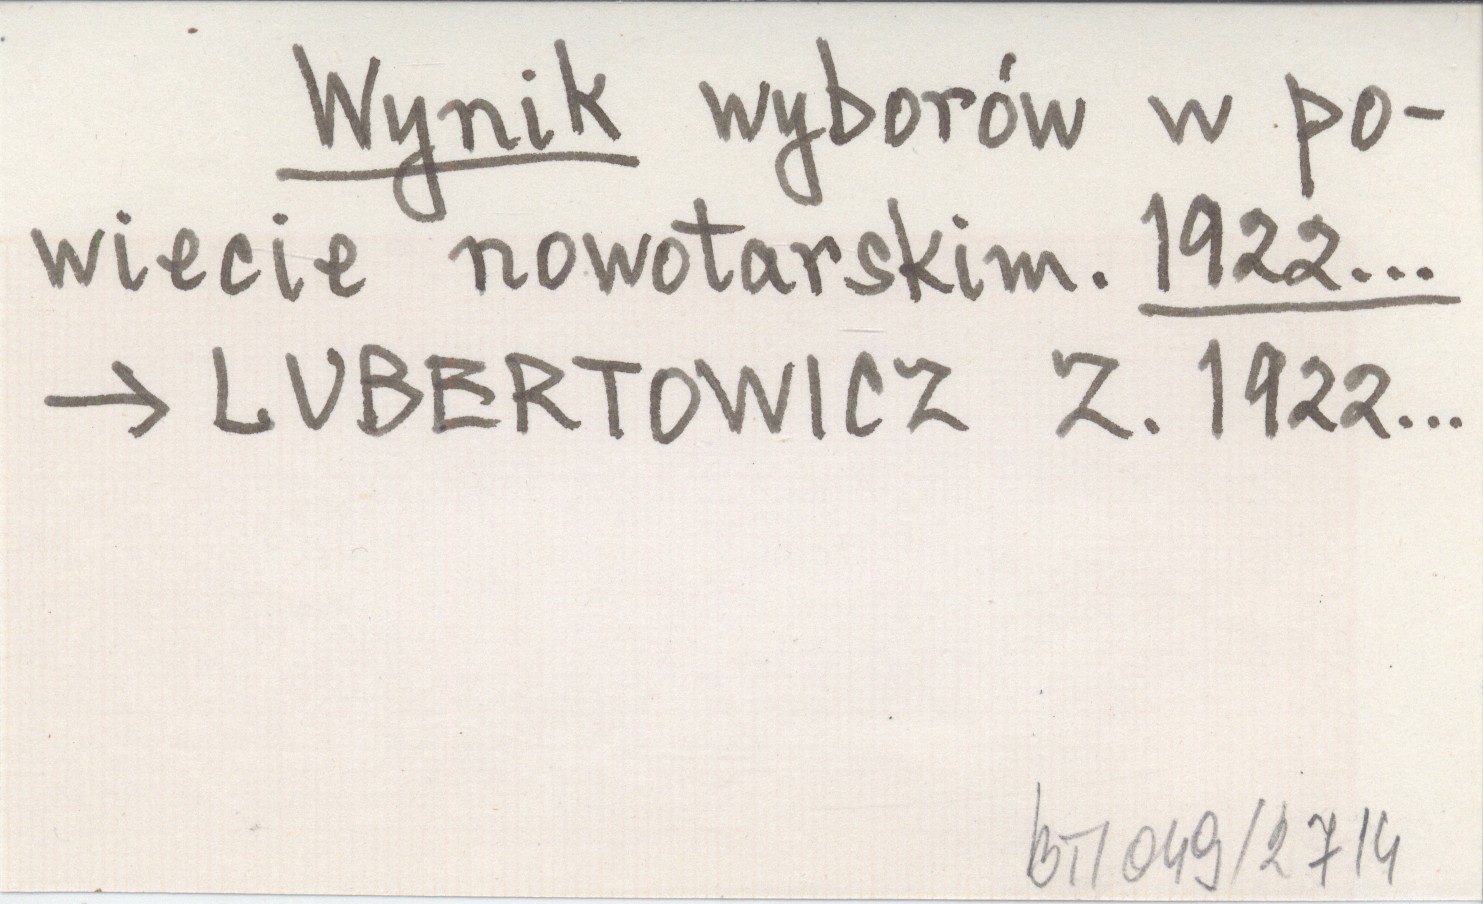 Wynik wyborów w po-
wiecie nowotarskim. 1922...
→ LUBERTOWICZ Z. 1922...
BT/049/2714